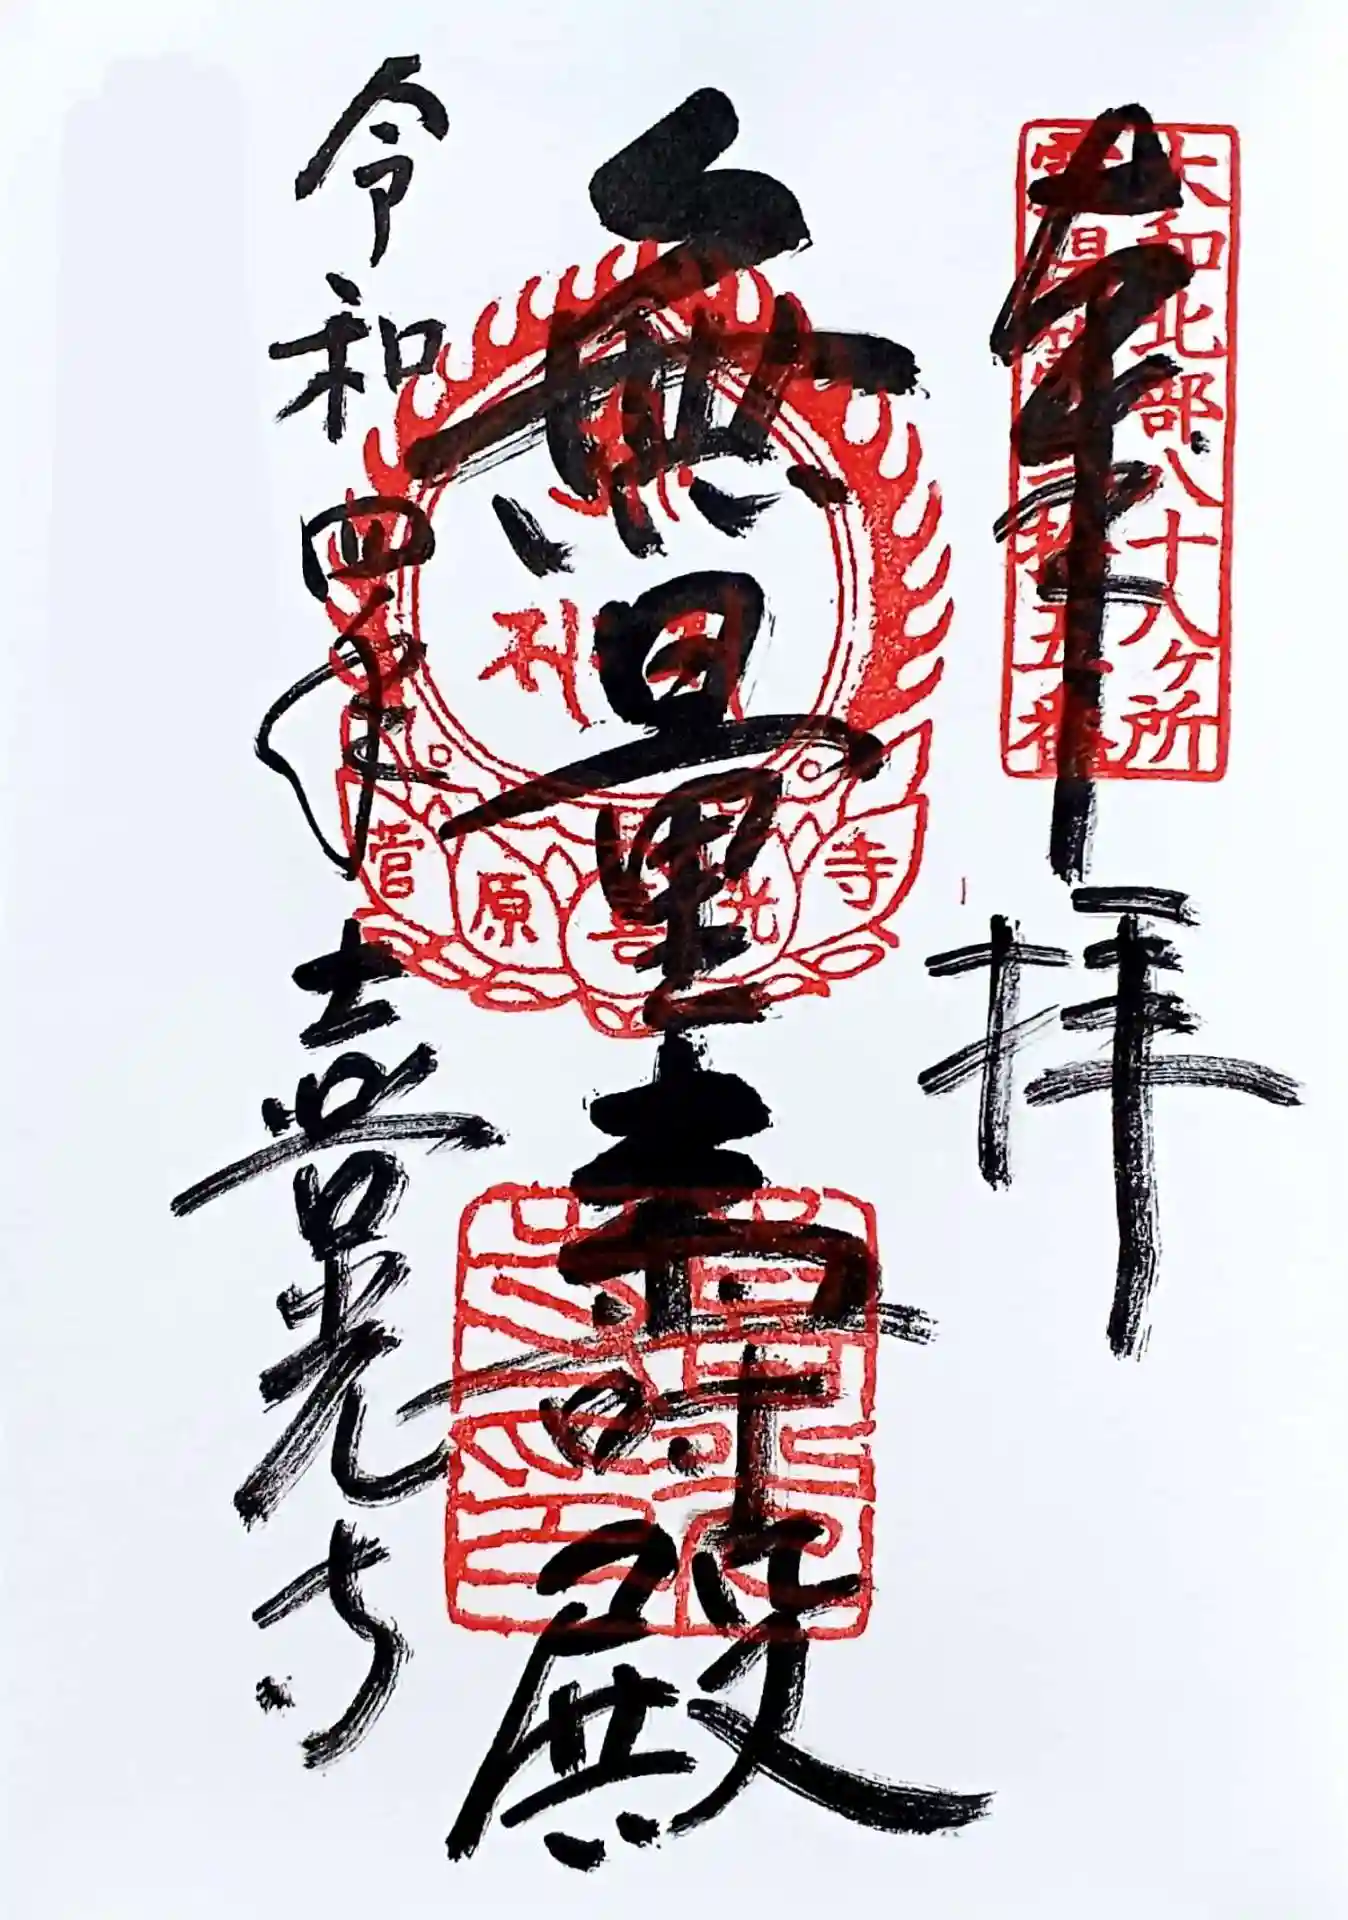 奉拝
大和北部八十八ヶ所
霊場第 拾五番
無量壽殿
菅原喜光寺
令和四年 喜光寺